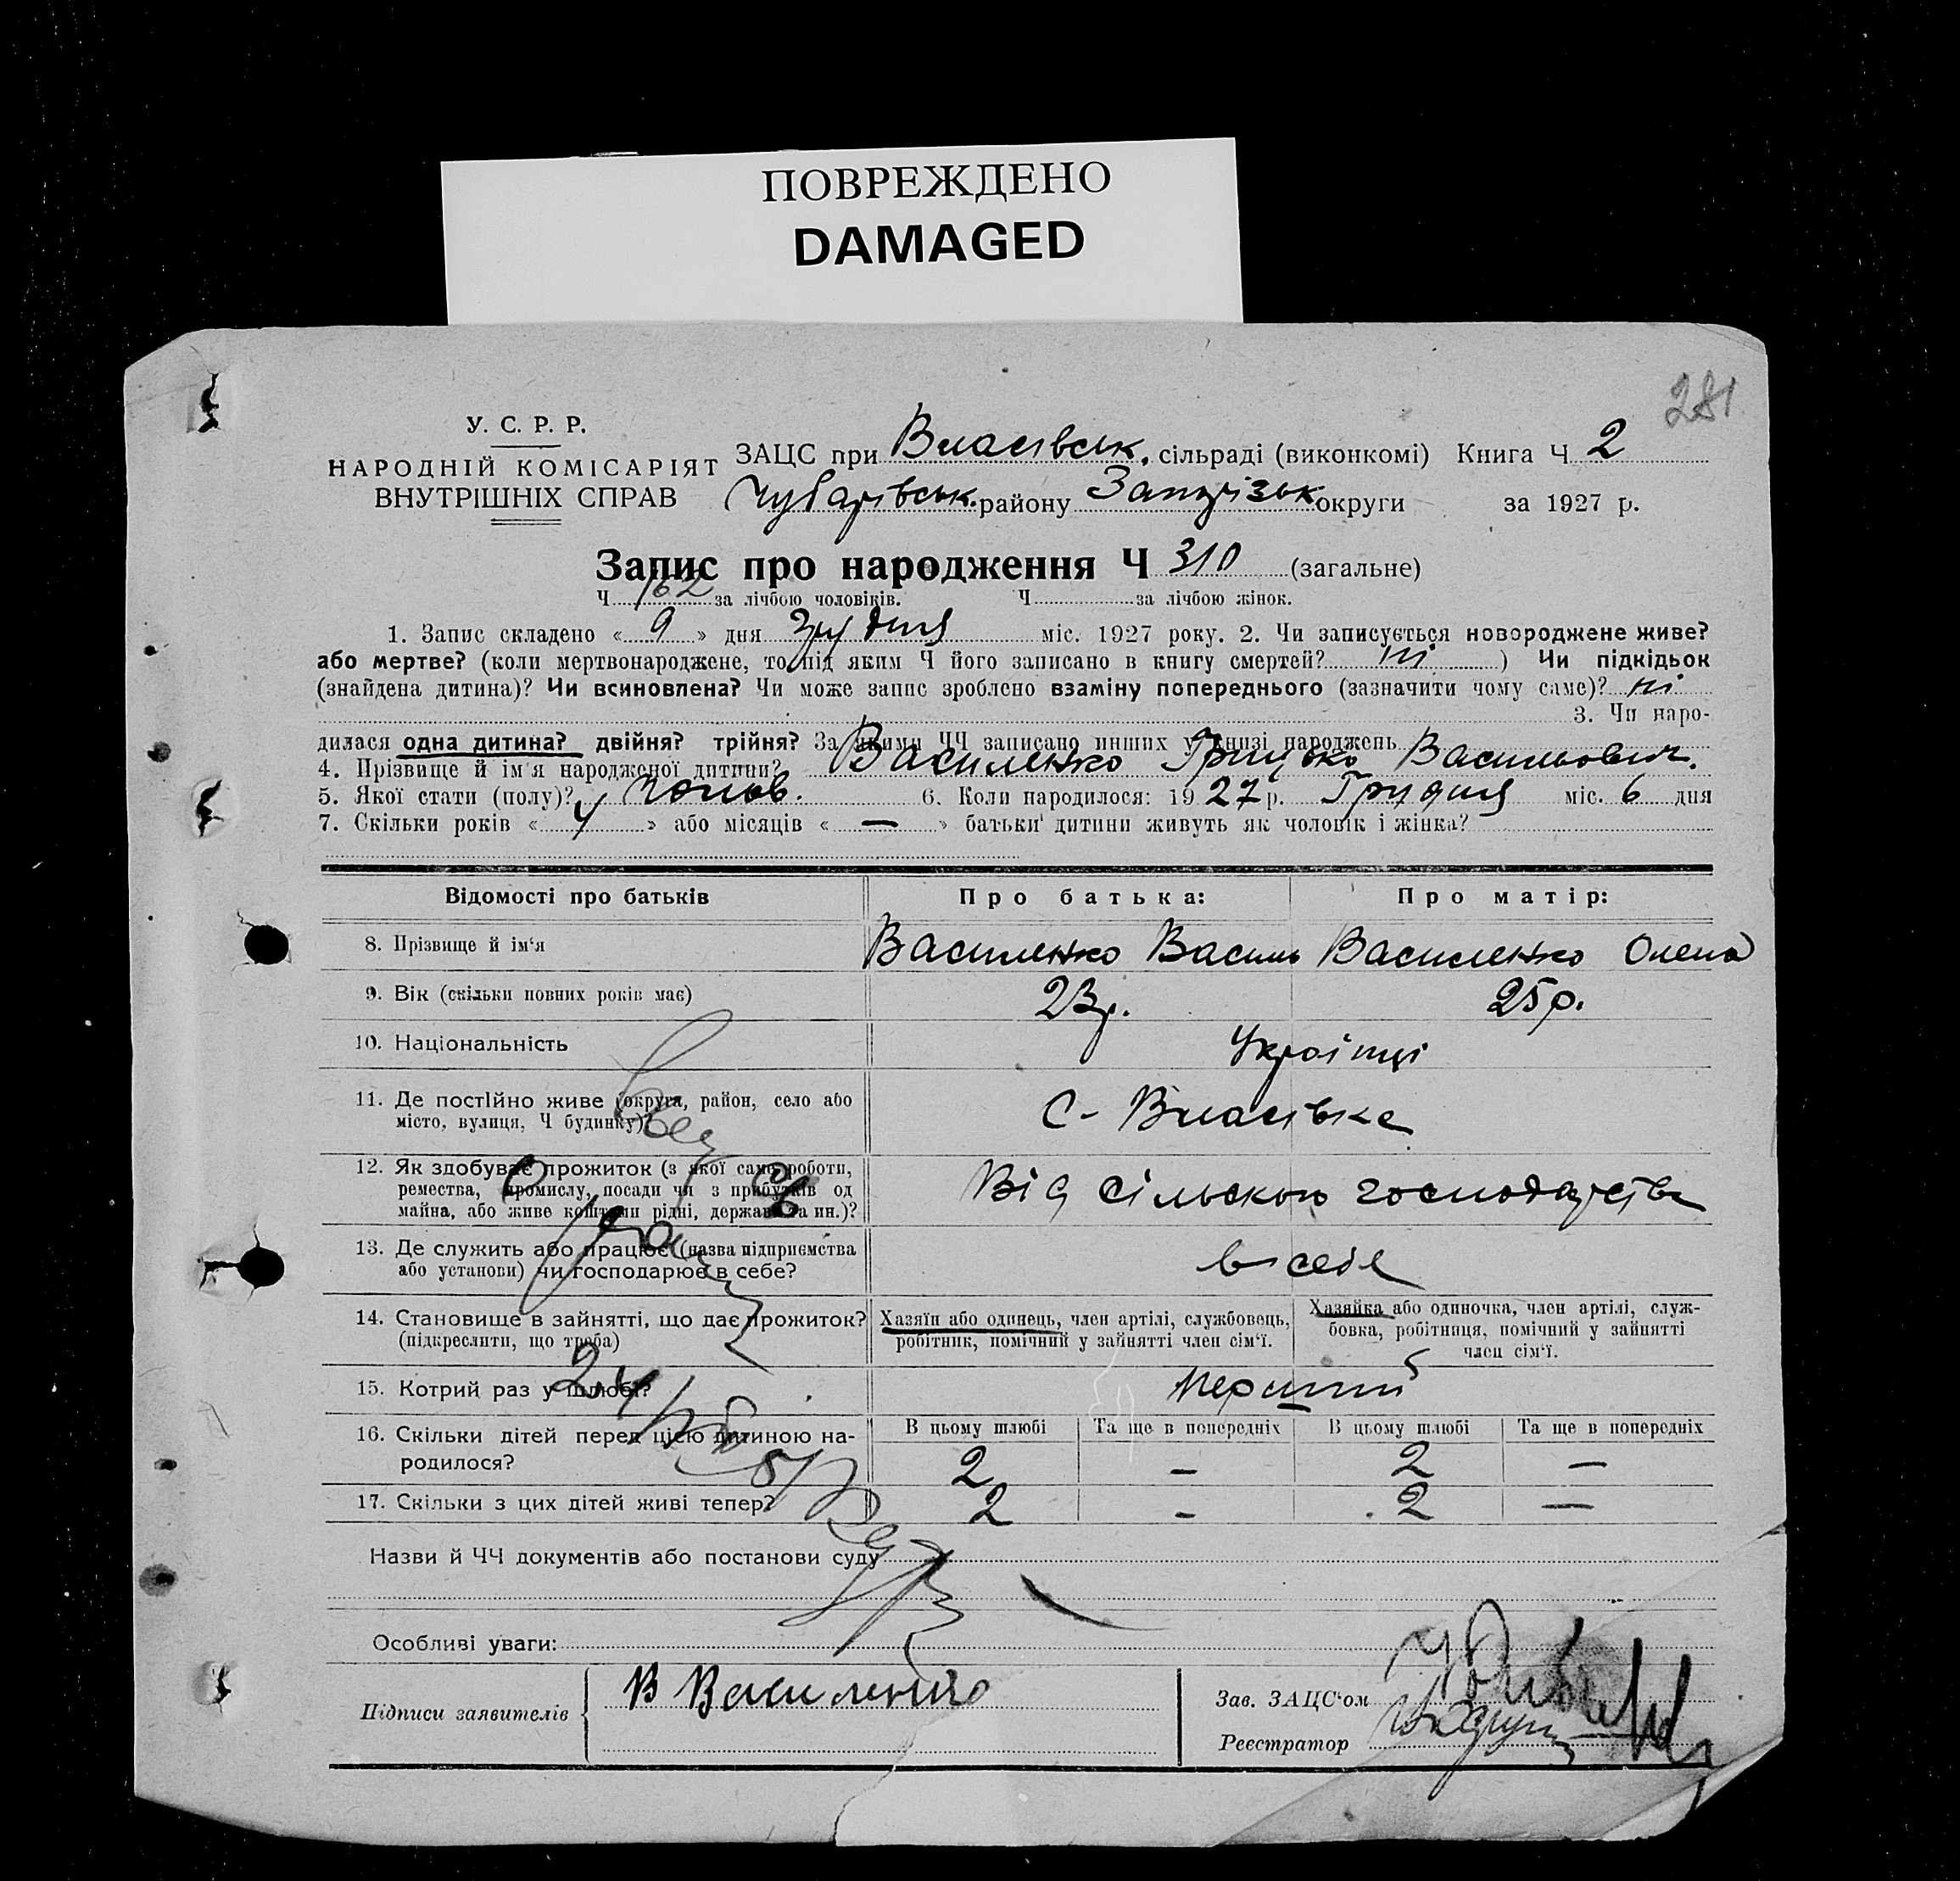 ПОВРЕЖДЕНО
DAMAGED
281
У. С. Р. Р.
НАРОДНІЙ КОМІСАРІЯТ
ВНУТРІШНІХ СПРАВ
ЗАЦС при Власівськ. сільраді (виконкомі) Книга Ч 2
Чубарівськ. району Запорізьк округи за 1927 р.
Запис про народження Ч 310 (загальне)
Ч 162 за лічбою чоловіків. Ч за лічбою жінок.
1. Запис складено « 9 » дня Грудня міс. 1927 року. 2. Чи записується новороджене живе?
або мертве? (коли мертвонароджене, то під яким Ч його записано в книгу смертей? ні ) Чи підкідьок
(знайдена дитина)? Чи всиновлена? Чи може запис зроблено взаміну попереднього (зазначити чому саме)? ні
3. Чи наро-
дилася одна дитина? двійня? трійня? За якими ЧЧ записано инших у книзі народжень
4. Прізвище й ім'я народженої дитини? Василенко Грицько Васильович.
5. Якої стати (полу)? Чолов. 6. Коли народилося: 1927 р. Грудня міс. 6 дня
7. Скільки років « 4 » або місяців « — » батьки дитини живуть як чоловік і жінка?
Відомості про батьків Про батька: Про матір:
8. Прізвище й ім'я Василенко Василь Василенко Олена
9. Вік (скільки повних років має) 23р. 25р.
10. Національність Українці
11. Де постійно живе (округа, район, село або
місто, вулиця, Ч будинку)? С- Власівка
12. Як здобуває прожиток (з якої саме роботи,
ремества, промислу, посади чи з прибутків од
майна, або живе коштами рідні, держави та ин.)? Від сільського господарства
13. Де служить або працює (назва підприємства
або установи) чи господарює в себе? в себе
14. Становище в зайнятті, що дає прожиток?
(підкреслити, що треба)
Хазяїн або одинець, член артілі, службовець,
робітник, помічний у зайнятті член сім'ї.
Хазяйка або одиночка, член артілі, служ-
бовка, робітниця, помічний у зайнятті
член сім'ї.
15. Котрий раз у шлюбі? перший
16. Скільки дітей перед цією дитиною на-
родилося?
В цьому шлюбі Та ще в попередніх В цьому шлюбі Та ще в попередніх
2 — 2 —
17. Скільки з цих дітей живі тепер? 2 - 2 —
Назви й ЧЧ документів або постанови суду
Особливі уваги:
Підписи заявителів В Василенко
Зав. ЗАЦС'ом
Реєстратор